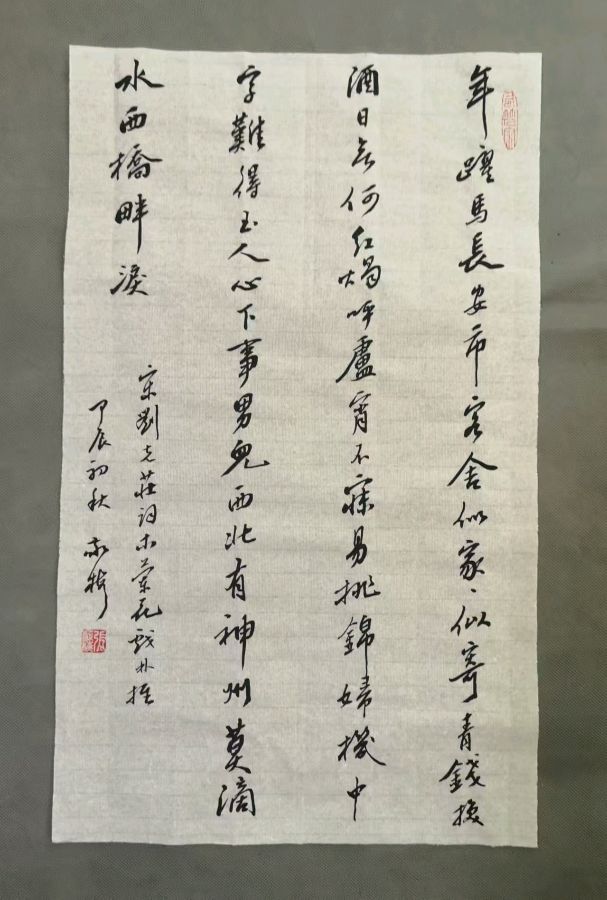 年躍馬長安市客舍似家〻似寄青錢換
酒日無何紅燭呼盧宵不寐易挑錦婦機中
字難得玉人心下事男兒西北有神州莫滴
水西橋畔淚
宋劉克莊詞木蘭花戲林推
甲辰初秋